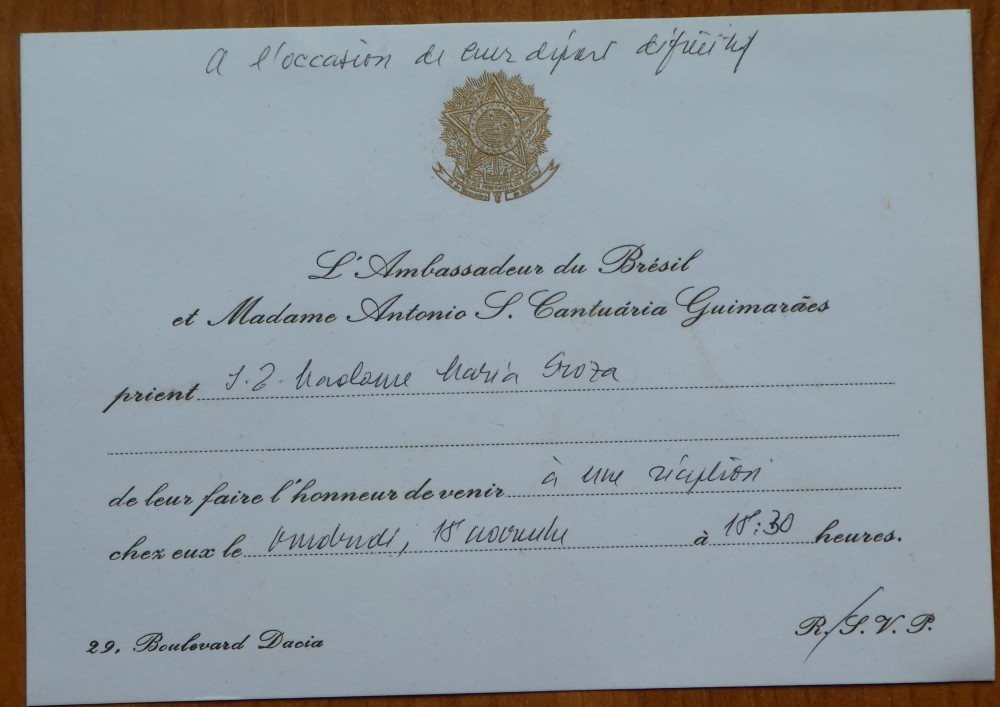 A l'occasion de leur départ définitif
L'Ambassadeur du Brésil
et Madame Antonio S. Cantuária Guimarães
prient S.E. Madame Maria Groza
de leur faire l'honneur de venir à une réception
chez eux le vendredi, 18 novembre à 18:30 heures.
29, Boulevard Dacia
R./S.V.P.